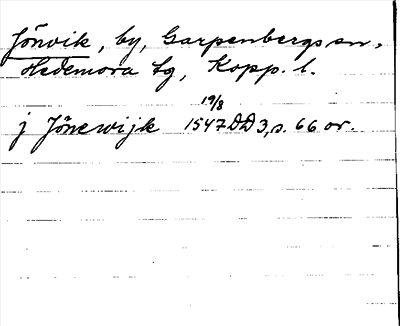 Jönvik, by, Garpenbergs sn,
Hedemora tg, Kopp. l.
19/8
j Jönewijk 1547 DD 3, s. 66 or.